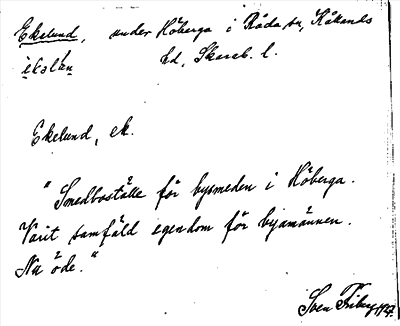 Ekelund, under Höberga i Råda sn, Kållands
ekslȧn hd, Skarab. l.
Ekelund, ek.
"Smedboställe för bysmeden i Höberga.
Varit samfäld egendom för byamännen.
Nu öde."
Sven Friberg